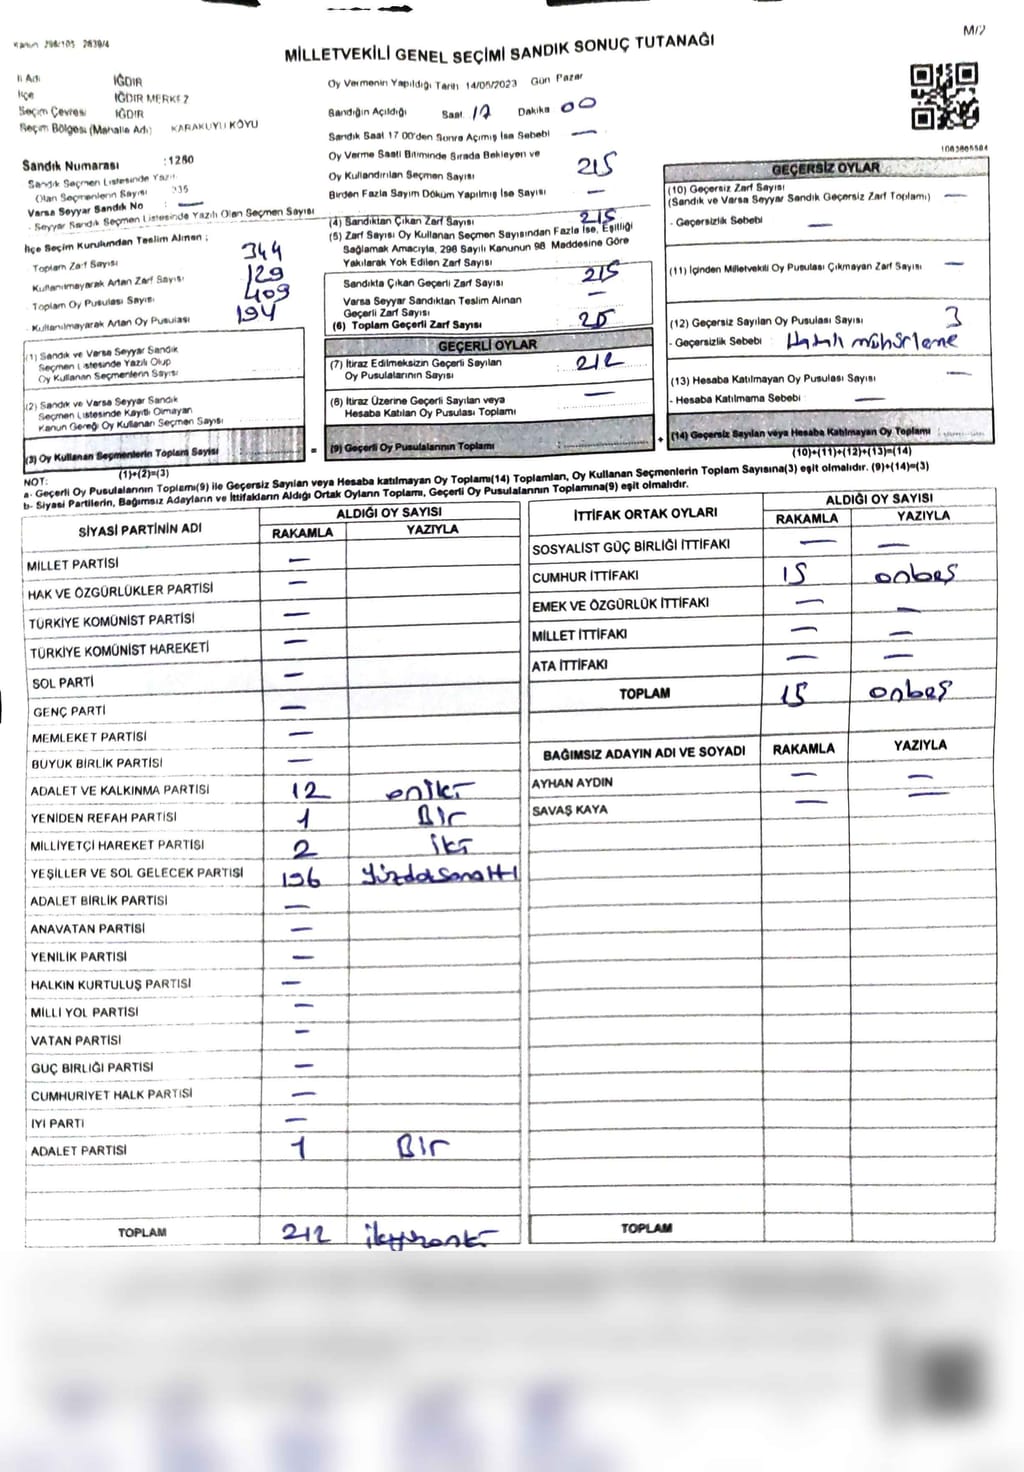 M/2
Kanun 298/105 2839/4
MİLLETVEKİLİ GENEL SEÇİMİ SANDIK SONUÇ TUTANAĞI
İl Adı IĞDIR
İlçe IĞDIR MERKEZ
Seçim Çevresi IĞDIR
Seçim Bölgesi (Mahalle Adı) KARAKUYU KÖYU
Sandık Numarası :1280
Sandık Seçmen Listesinde Yazılı
Olan Seçmenlerin Sayısı 235
Varsa Seyyar Sandık No : —
- Seyyar Sandık Seçmen Listesinde Yazılı Olan Seçmen Sayısı
İlçe Seçim Kurulundan Teslim Alınan ;
Toplam Zarf Sayısı 344
Kullanılmayarak Artan Zarf Sayısı 129
- Toplam Oy Pusulası Sayısı 409
- Kullanılmayarak Artan Oy Pusulası 194
(1) Sandık ve Varsa Seyyar Sandık
Seçmen Listesinde Yazılı Olup
Oy Kullanan Seçmenlerin Sayısı
(2) Sandık ve Varsa Seyyar Sandık
Seçmen Listesinde Kayıtlı Olmayan
Kanun Gereği Oy Kullanan Seçmen Sayısı
(3) Oy Kullanan Seçmenlerin Toplam Sayısı
(1)+(2)=(3)
Oy Vermenin Yapıldığı Tarih 14/05/2023 Gün Pazar
Sandığın Açıldığı Saat 17 Dakika 00
Sandık Saat 17 00'den Sonra Açımış İse Sebebi —
Oy Verme Saati Bitiminde Sırada Bekleyen ve
Oy Kullandırılan Seçmen Sayısı 215
Birden Fazla Sayım Döküm Yapılmış İse Sayısı —
(4) Sandıktan Çıkan Zarf Sayısı 215
(5) Zarf Sayısı Oy Kullanan Seçmen Sayısından Fazla İse, Eşitliği
Sağlamak Amacıyla, 298 Sayılı Kanunun 98 Maddesine Göre
Yakılarak Yok Edilen Zarf Sayısı
Sandıkta Çıkan Geçerli Zarf Sayısı 215
Varsa Seyyar Sandıktan Teslim Alınan
Geçerli Zarf Sayısı —
(6) Toplam Geçerli Zarf Sayısı
GEÇERLİ OYLAR
(7) İtiraz Edilmeksizin Geçerli Sayılan
Oy Pusulalarının Sayısı 212
(8) İtiraz Üzerine Geçerli Sayılan veya
Hesaba Katılan Oy Pusulası Toplamı —
= (9) Geçerli Oy Pusulalarının Toplamı +
1083805584
GEÇERSİZ OYLAR
(10) Geçersiz Zarf Sayısı
(Sandık ve Varsa Seyyar Sandık Geçersiz Zarf Toplamı) —
- Geçersizlik Sebebi : —
(11) İçinden Milletvekili Oy Pusulası Çıkmayan Zarf Sayısı —
(12) Geçersiz Sayılan Oy Pusulası Sayısı 3
- Geçersizlik Sebebi : Hatalı mühürleme
(13) Hesaba Katılmayan Oy Pusulası Sayısı —
- Hesaba Katılmama Sebebi —
(14) Geçersiz Sayılan veya Hesaba Katılmayan Oy Toplamı
(10)+(11)+(12)+(13)=(14)
NOT:
a- Geçerli Oy Pusulalarının Toplamı(9) ile Geçersiz Sayılan veya Hesaba katılmayan Oy Toplamı(14) Toplamları, Oy Kullanan Seçmenlerin Toplam Sayısına(3) eşit olmalıdır. (9)+(14)=(3)
b- Siyasi Partilerin, Bağımsız Adayların ve İttifakların Aldığı Ortak Oyların Toplamı, Geçerli Oy Pusulalarının Toplamına(9) eşit olmalıdır.
SİYASİ PARTİNİN ADI ALDIĞI OY SAYISI
RAKAMLA YAZIYLA
MİLLET PARTİSİ —
HAK VE ÖZGÜRLÜKLER PARTİSİ —
TÜRKİYE KOMÜNİST PARTİSİ —
TÜRKİYE KOMÜNİST HAREKETİ —
SOL PARTİ —
GENÇ PARTİ —
MEMLEKET PARTİSİ —
BÜYÜK BİRLİK PARTİSİ —
ADALET VE KALKINMA PARTİSİ 12 oniki
YENİDEN REFAH PARTİSİ 1 Bir
MİLLİYETÇİ HAREKET PARTİSİ 2 iki
YEŞİLLER VE SOL GELECEK PARTİSİ 196 Yüzdoksanaltı
ADALET BİRLİK PARTİSİ —
ANAVATAN PARTİSİ —
YENİLİK PARTİSİ —
HALKIN KURTULUŞ PARTİSİ —
MİLLİ YOL PARTİSİ —
VATAN PARTİSİ —
GÜÇ BİRLİĞİ PARTİSİ —
CUMHURİYET HALK PARTİSİ —
İYİ PARTİ —
ADALET PARTİSİ 1 Bir
TOPLAM 212
İTTİFAK ORTAK OYLARI ALDIĞI OY SAYISI
RAKAMLA YAZIYLA
SOSYALİST GÜÇ BİRLİĞİ İTTİFAKI — —
CUMHUR İTTİFAKI 15 onbeş
EMEK VE ÖZGÜRLÜK İTTİFAKI — —
MİLLET İTTİFAKI — —
ATA İTTİFAKI — —
TOPLAM 15 onbeş
BAĞIMSIZ ADAYIN ADI VE SOYADI RAKAMLA YAZIYLA
AYHAN AYDIN — —
SAVAŞ KAYA — —
TOPLAM